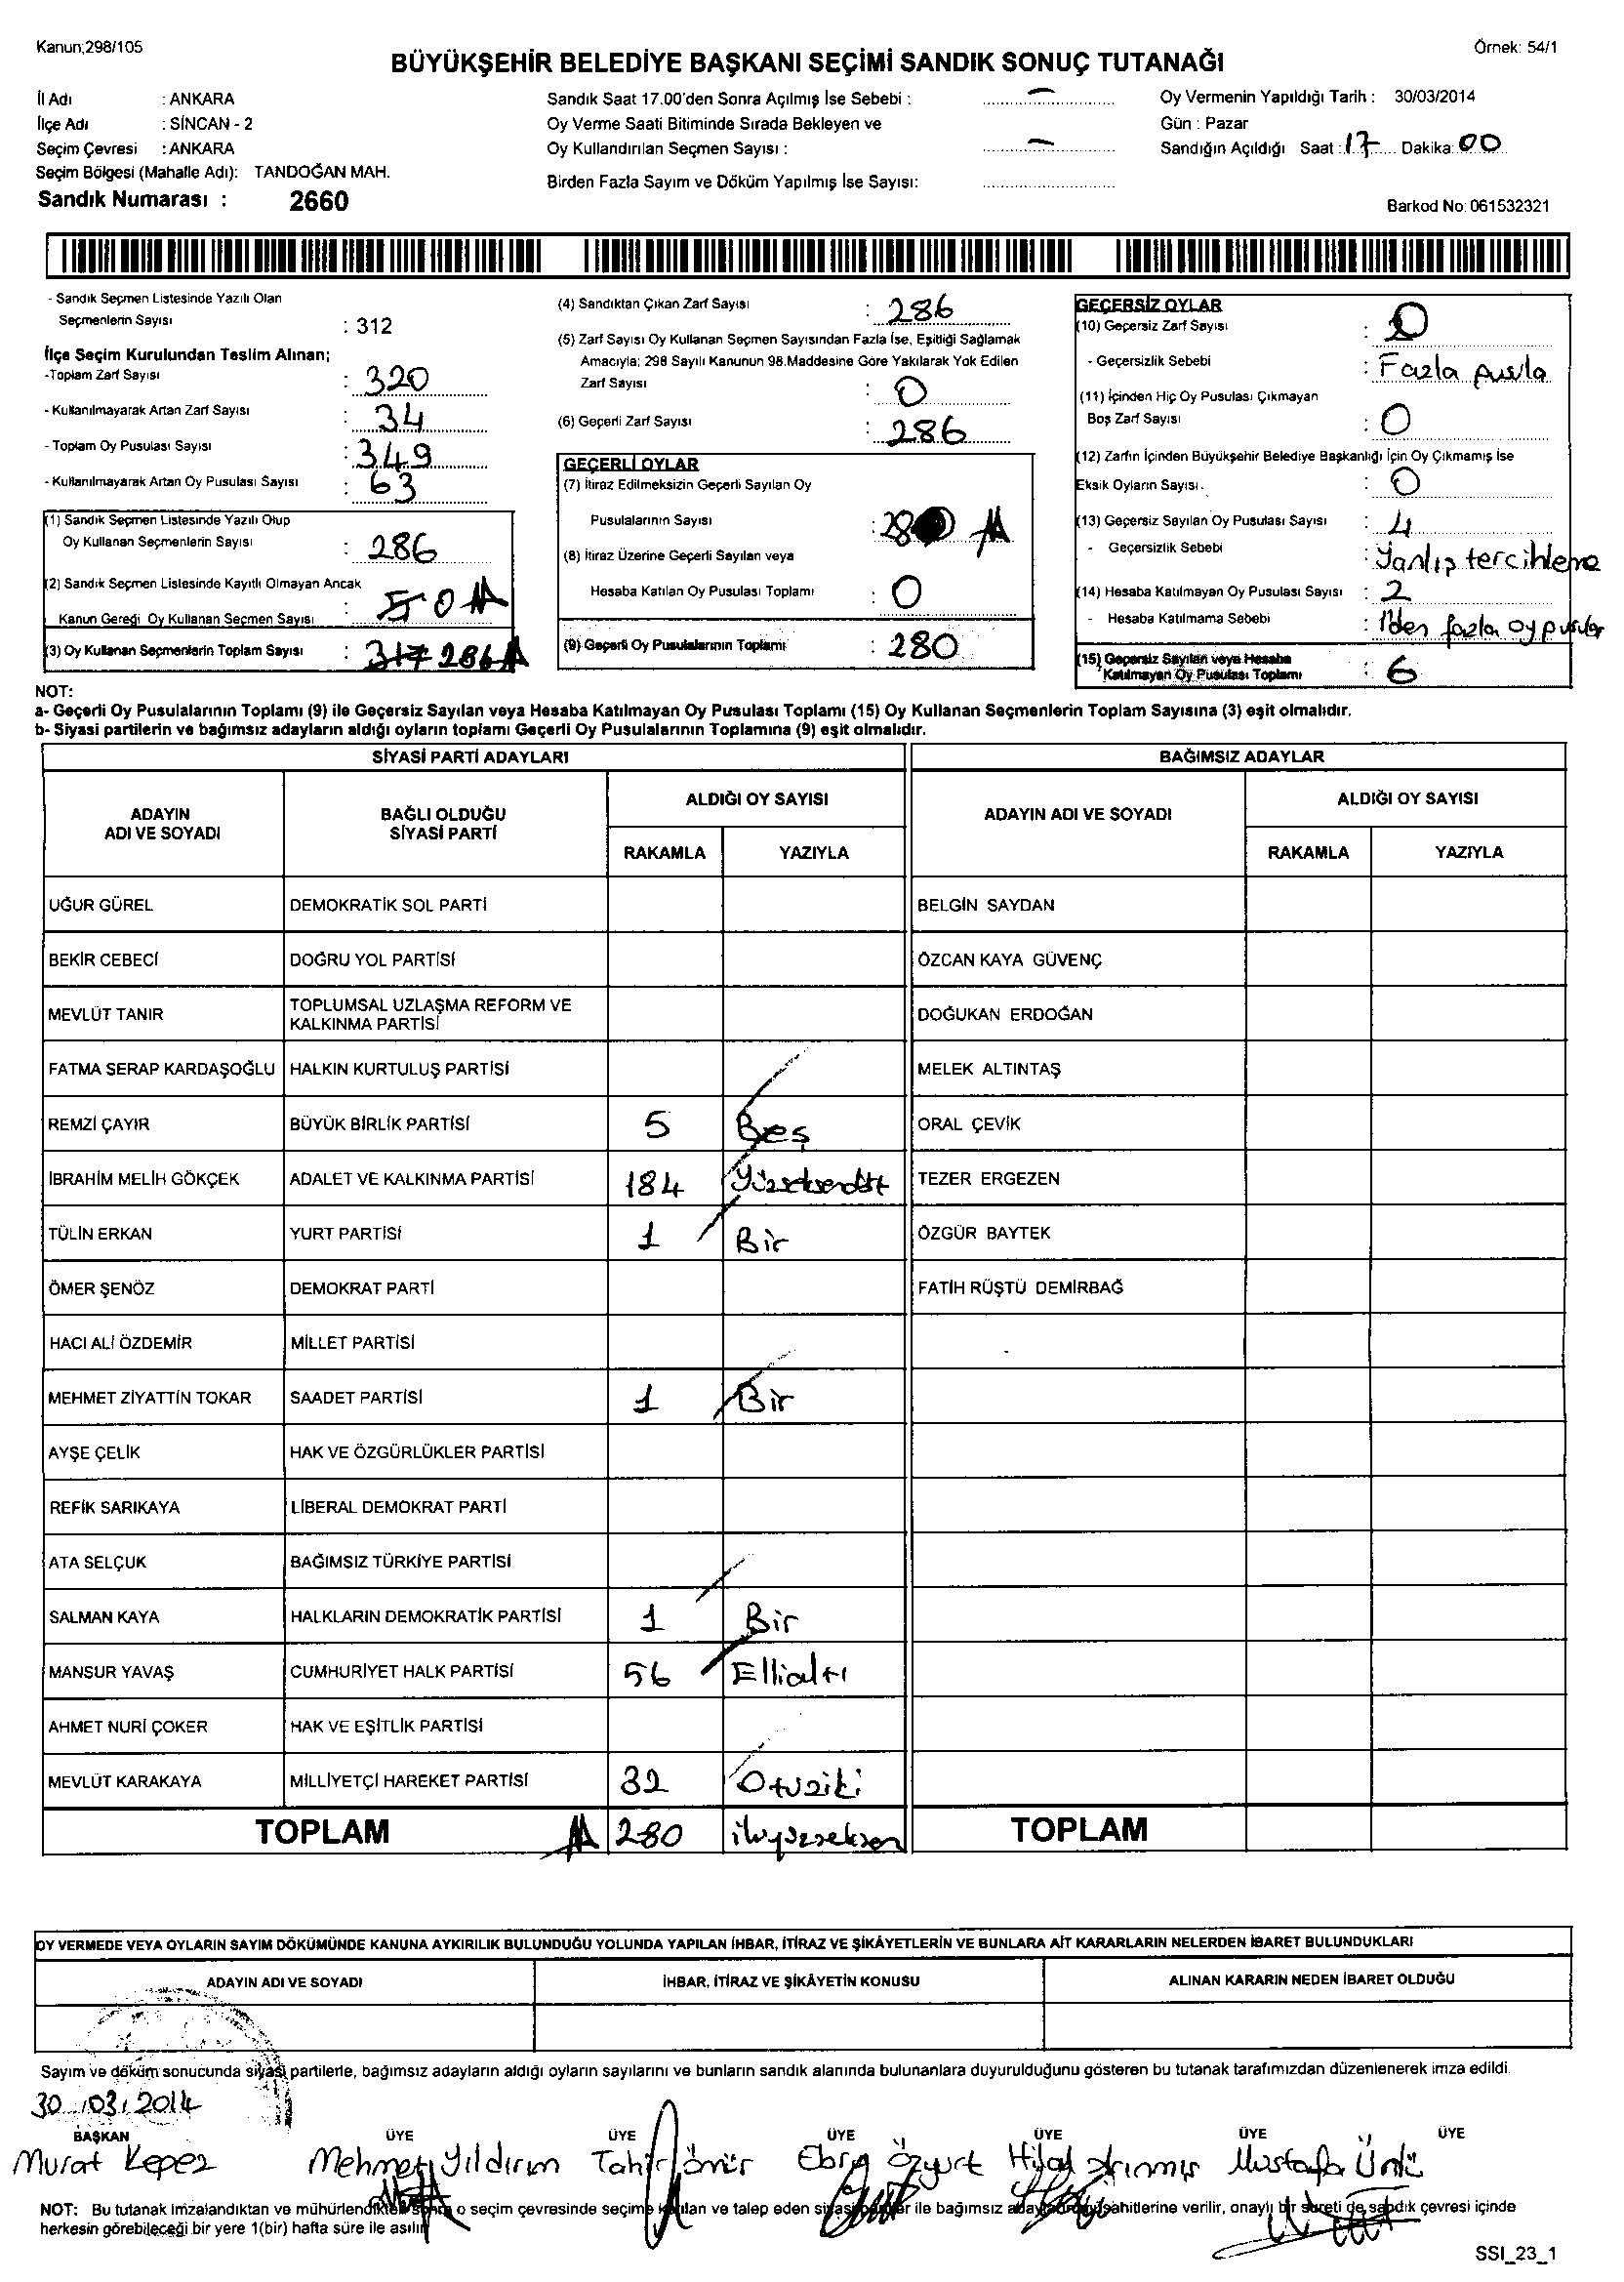 Kanun;298/105
Örnek: 54/1
BÜYÜKŞEHİR BELEDİYE BAŞKANI SEÇİMİ SANDIK SONUÇ TUTANAĞI
İl Adı : ANKARA
İlçe Adı : SİNCAN - 2
Seçim Çevresi : ANKARA
Seçim Bölgesi (Mahalle Adı): TANDOĞAN MAH.
Sandık Numarası : 2660
Sandık Saat 17.00'den Sonra Açılmış İse Sebebi : —
Oy Verme Saati Bitiminde Sırada Bekleyen ve
Oy Kullandırılan Seçmen Sayısı : —
Birden Fazla Sayım ve Döküm Yapılmış İse Sayısı:
Oy Vermenin Yapıldığı Tarih : 30/03/2014
Gün : Pazar
Sandığın Açıldığı Saat : 17 Dakika: 00
Barkod No: 061532321
- Sandık Seçmen Listesinde Yazılı Olan
Seçmenlerin Sayısı : 312
İlçe Seçim Kurulundan Teslim Alınan;
-Toplam Zarf Sayısı : 320
- Kullanılmayarak Artan Zarf Sayısı : 34
- Toplam Oy Pusulası Sayısı : 349
- Kullanılmayarak Artan Oy Pusulası Sayısı : 63
(1) Sandık Seçmen Listesinde Yazılı Olup
Oy Kullanan Seçmenlerin Sayısı : 286
(2) Sandık Seçmen Listesinde Kayıtlı Olmayan Ancak
Kanun Gereği Oy Kullanan Seçmen Sayısı : 5 0
(3) Oy Kullanan Seçmenlerin Toplam Sayısı : 317 286
(4) Sandıktan Çıkan Zarf Sayısı : 286
(5) Zarf Sayısı Oy Kullanan Seçmen Sayısından Fazla İse, Eşitliği Sağlamak
Amacıyla; 298 Sayılı Kanunun 98.Maddesine Göre Yakılarak Yok Edilen
Zarf Sayısı : 0
(6) Geçerli Zarf Sayısı : 286
GEÇERLİ OYLAR
(7) İtiraz Edilmeksizin Geçerli Sayılan Oy
Pusulalarının Sayısı : 280
(8) İtiraz Üzerine Geçerli Sayılan veya
Hesaba Katılan Oy Pusulası Toplamı : 0
(9) Geçerli Oy Pusulalarının Toplamı : 280
GEÇERSİZ OYLAR
(10) Geçersiz Zarf Sayısı : 0
- Geçersizlik Sebebi : Fazla pusla
(11) İçinden Hiç Oy Pusulası Çıkmayan
Boş Zarf Sayısı : 0
(12) Zarfın İçinden Büyükşehir Belediye Başkanlığı İçin Oy Çıkmamış İse
Eksik Oyların Sayısı. : 0
(13) Geçersiz Sayılan Oy Pusulası Sayısı : 4
- Geçersizlik Sebebi : Yanlış tercihleme
(14) Hesaba Katılmayan Oy Pusulası Sayısı : 2
- Hesaba Katılmama Sebebi : 1'den fazla oy pusular
(15) Geçersiz Sayılan veya Hesaba
Katılmayan Oy Pusulası Toplamı : 6
NOT:
a- Geçerli Oy Pusulalarının Toplamı (9) ile Geçersiz Sayılan veya Hesaba Katılmayan Oy Pusulası Toplamı (15) Oy Kullanan Seçmenlerin Toplam Sayısına (3) eşit olmalıdır.
b- Siyasi partilerin ve bağımsız adayların aldığı oyların toplamı Geçerli Oy Pusulalarının Toplamına (9) eşit olmalıdır.
SİYASİ PARTİ ADAYLARI BAĞIMSIZ ADAYLAR
ADAYIN ADI VE SOYADI BAĞLI OLDUĞU SİYASİ PARTİ ALDIĞI OY SAYISI ADAYIN ADI VE SOYADI ALDIĞI OY SAYISI
RAKAMLA YAZIYLA RAKAMLA YAZIYLA
UĞUR GÜREL DEMOKRATİK SOL PARTİ BELGİN SAYDAN
BEKİR CEBECİ DOĞRU YOL PARTİSİ ÖZCAN KAYA GÜVENÇ
MEVLÜT TANIR TOPLUMSAL UZLAŞMA REFORM VE KALKINMA PARTİSİ DOĞUKAN ERDOĞAN
FATMA SERAP KARDAŞOĞLU HALKIN KURTULUŞ PARTİSİ MELEK ALTINTAŞ
REMZİ ÇAYIR BÜYÜK BİRLİK PARTİSİ 5 Beş ORAL ÇEVİK
İBRAHİM MELİH GÖKÇEK ADALET VE KALKINMA PARTİSİ 184 Yüzseksendört TEZER ERGEZEN
TÜLİN ERKAN YURT PARTİSİ 1 Bir ÖZGÜR BAYTEK
ÖMER ŞENÖZ DEMOKRAT PARTİ FATİH RÜŞTÜ DEMİRBAĞ
HACI ALİ ÖZDEMİR MİLLET PARTİSİ
MEHMET ZİYATTİN TOKAR SAADET PARTİSİ 1 Bir
AYŞE ÇELİK HAK VE ÖZGÜRLÜKLER PARTİSİ
REFİK SARIKAYA LİBERAL DEMOKRAT PARTİ
ATA SELÇUK BAĞIMSIZ TÜRKİYE PARTİSİ
SALMAN KAYA HALKLARIN DEMOKRATİK PARTİSİ 1 Bir
MANSUR YAVAŞ CUMHURİYET HALK PARTİSİ 56 Ellialtı
AHMET NURİ ÇOKER HAK VE EŞİTLİK PARTİSİ
MEVLÜT KARAKAYA MİLLİYETÇİ HAREKET PARTİSİ 32 Otuziki
TOPLAM 280 ikiyüzseksen TOPLAM
OY VERMEDE VEYA OYLARIN SAYIM DÖKÜMÜNDE KANUNA AYKIRILIK BULUNDUĞU YOLUNDA YAPILAN İHBAR, İTİRAZ VE ŞİKÂYETLERİN VE BUNLARA AİT KARARLARIN NELERDEN İBARET BULUNDUKLARI
ADAYIN ADI VE SOYADI İHBAR, İTİRAZ VE ŞİKÂYETİN KONUSU ALINAN KARARIN NEDEN İBARET OLDUĞU
Sayım ve döküm sonucunda siyasi partilerle, bağımsız adayların aldığı oyların sayılarını ve bunların sandık alanında bulunanlara duyurulduğunu gösteren bu tutanak tarafımızdan düzenlenerek imza edildi.
30/03/2014
BAŞKAN ÜYE ÜYE ÜYE ÜYE ÜYE ÜYE
Murat Kepez Mehmet Yıldırım Tahir Ömür Ebru Özyurt Hilal Mustafa Ünlü
NOT: Bu tutanak imzalandıktan ve mühürlendikten sonra o seçim çevresinde seçime katılan ve talep eden siyasi partiler ile bağımsız aday müşahitlerine verilir, onaylı bir sureti de sandık çevresi içinde
herkesin görebileceği bir yere 1(bir) hafta süre ile asılır
SSI_23_1